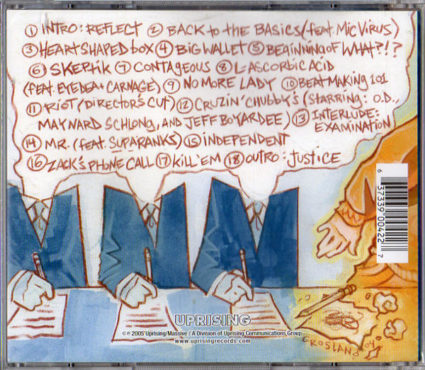 ① INTRO: REFLECT ② BACK to the BASICS (feat. MIC VIRUS)
③ HEART SHAPED box ④ BIG WALLET ⑤ BEGINNING OF WHAT?!?
⑥ SKEPtik ⑦ CONTAGEOUS ⑧ L-ASCORBIC ACID
(FEAT. EYEDEA & CARNAGE) ⑨ NO MORE LADY ⑩ BEAT MAKING 101
⑪ RioT (DIRECTOR'S CUT) ⑫ CRUZIN' CHUBBY'S (STARRING: O.D.,
MAYNARD SCHLONG, AND JEFF BOYARDEE) ⑬ INTERLUDE: EXAMINATION
⑭ MR. (feat. SUPARANKS) ⑮ INDEPENDENT
⑯ ZACK'S PHONE CALL ⑰ KILL 'EM ⑱ OUTRO: JUSTICE
6 37339 00422 7
UPRISING
© ℗ 2005 Uprising/Massive / A Division of Uprising Communications Group
www.uprisingrecords.com
CROSLAND 04